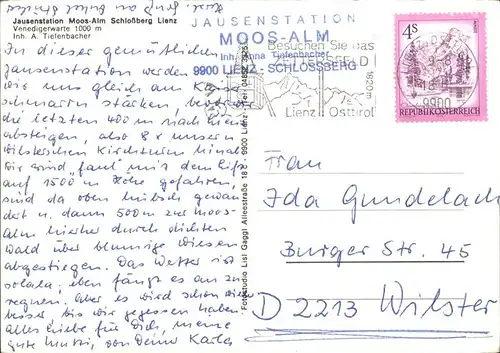 herzl. Gruß an Onkel Peter
Jausenstation Moos-Alm Schloßberg Lienz
Venedigerwarte 1000 m
Inh. A. Tiefenbacher
In dieser gemütlichen
Jausenstation werden
wir uns gleich am Kaiser
schmarrn stärken, bevor
die letzten 400 m nach Lienz
absteigen, also 8 x unseren
Wilsterschen Kirchturm hinab.
Wir sind "faul" mit dem Lift
auf 1500 m Höhe gefahren,
sind da oben hübsch gewan
dert u. dann 500 m zur Moos-
Alm hierher durch dichten
Wald über blumige Wiesen
abgestiegen. Das Wetter ist
solala, eben fängt es an zu
regnen. Aber es wird schon wieder
besser, bis wir gegessen haben.
Alles Liebe für Dich, meine
gute Mutti, von Deiner Karla
JAUSENSTATION
MOOS-ALM
Inh. Anna Tiefenbacher
9900 LIENZ - SCHLOSSBERG
Besuchen Sie das
1820 m
Lienz Osttirol
9900
4 S
REPUBLIK ÖSTERREICH
Fotostudio Lisl Gaggl Alleestraße 18 · 9900 Lienz
Frau
Ida Gundelach
Burger Str. 45
D 2213 Wilster